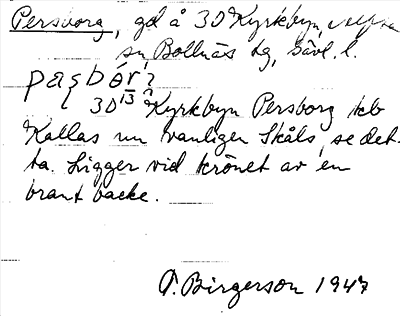 Persborg, gd å 3D Kyrkbyn,
sn, Bollnäs tg, Gävl. l.
3D 13 Kyrkbyn Persborg kb
Kallas nu vanligen Skåls, se det-
ta. Ligger vid krönet av en
brant backe.
T. Birgerson 1947